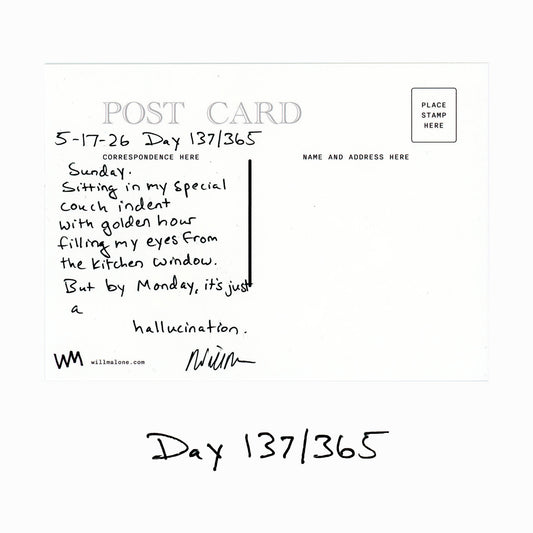 POST CARD
PLACE
STAMP
HERE
5-17-26 Day 137/365
CORRESPONDENCE HERE
NAME AND ADDRESS HERE
Sunday.
Sitting in my special
couch indent
with golden hour
filling my eyes from
the kitchen window.
But by Monday, it's just
a
hallucination.
WM willmalone.com
Day 137/365